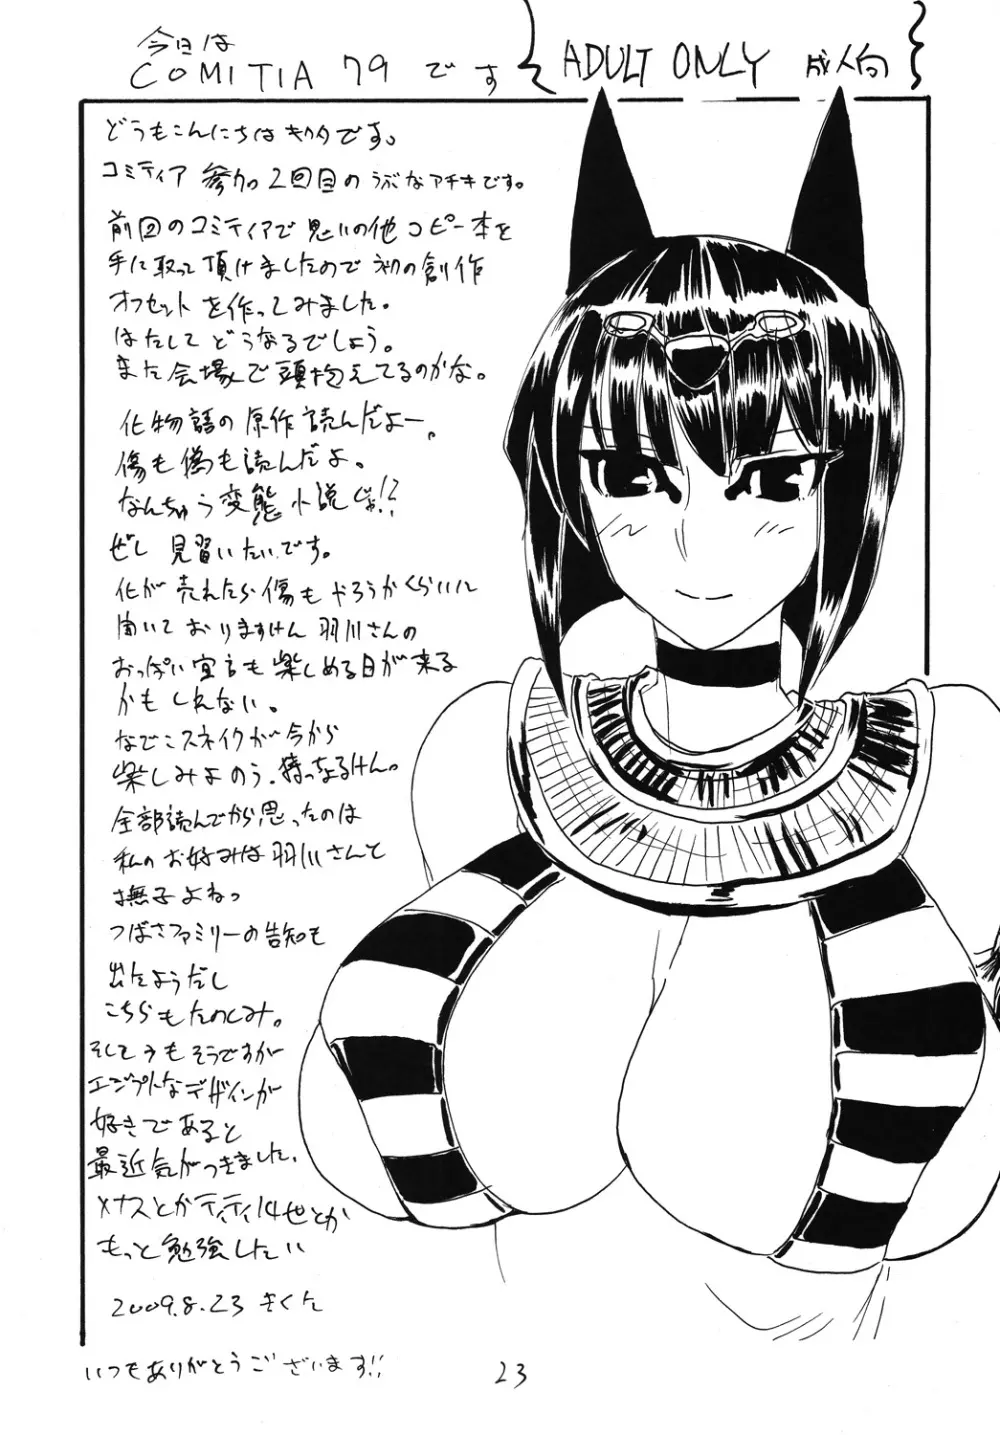 今日は
COMITIA 79 です
ADULT ONLY 成人向
どうもこんにちはキクタです。
コミティア 参加2回目のうぶなアチキです。
前回のコミティアで思いの他コピー本を
手に取って頂けましたので初の創作
オフセットを作ってみました。
はたしてどうなるでしょう。
また会場で頭抱えてるのかな。
化物語の原作読んだよー。
傷も偽も読んだよ。
なんちゅう変態小説じゃ!?
ぜし見習いたいです。
化が売れたら傷もやろうかくらいに
聞いておりますけん羽川さんの
おっぱい宣言も楽しめる日が来る
かもしれない。
なでこスネイクが今から
楽しみよのう。猿っなるけん。
全部読んでから思ったのは
私のお好みは羽川さんと
撫子よねっ
つばさファミリーの告知も
出たようだし
こちらもたのしみ。
そしてうもそうですが
エジプトなデザインが
好きであると
最近気がつきました。
メナスとかティティ14世とか
もっと勉強したい
2009.8.23 きくた
いつもありがとうございます!!
23